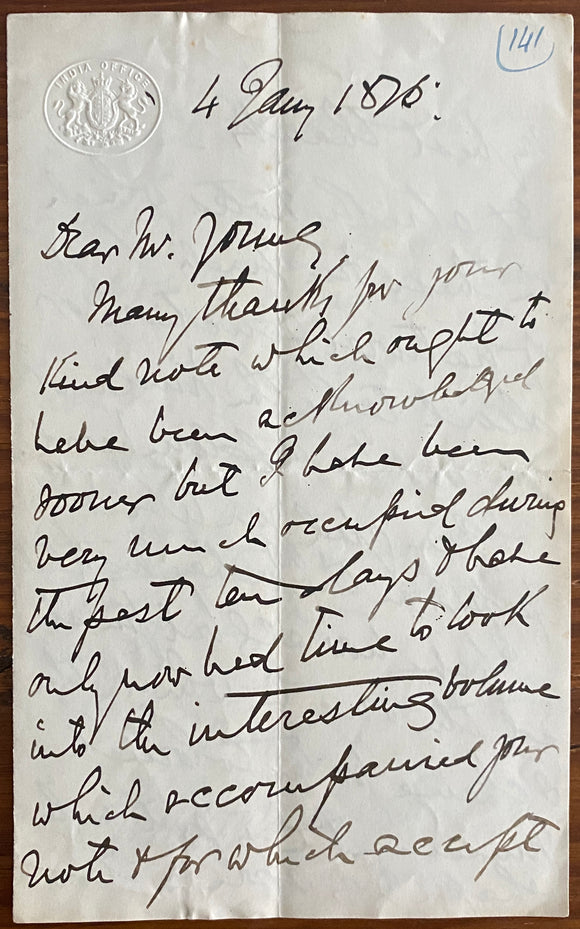 141
INDIA OFFICE
4 Jany 1876.
Dear Mr. Young
Many thanks for your
kind note which ought to
have been acknowledged
sooner but I have been
very much occupied during
the past ten days & have
only now had time to look
into the interesting volume
which accompanied your
note & for which accept